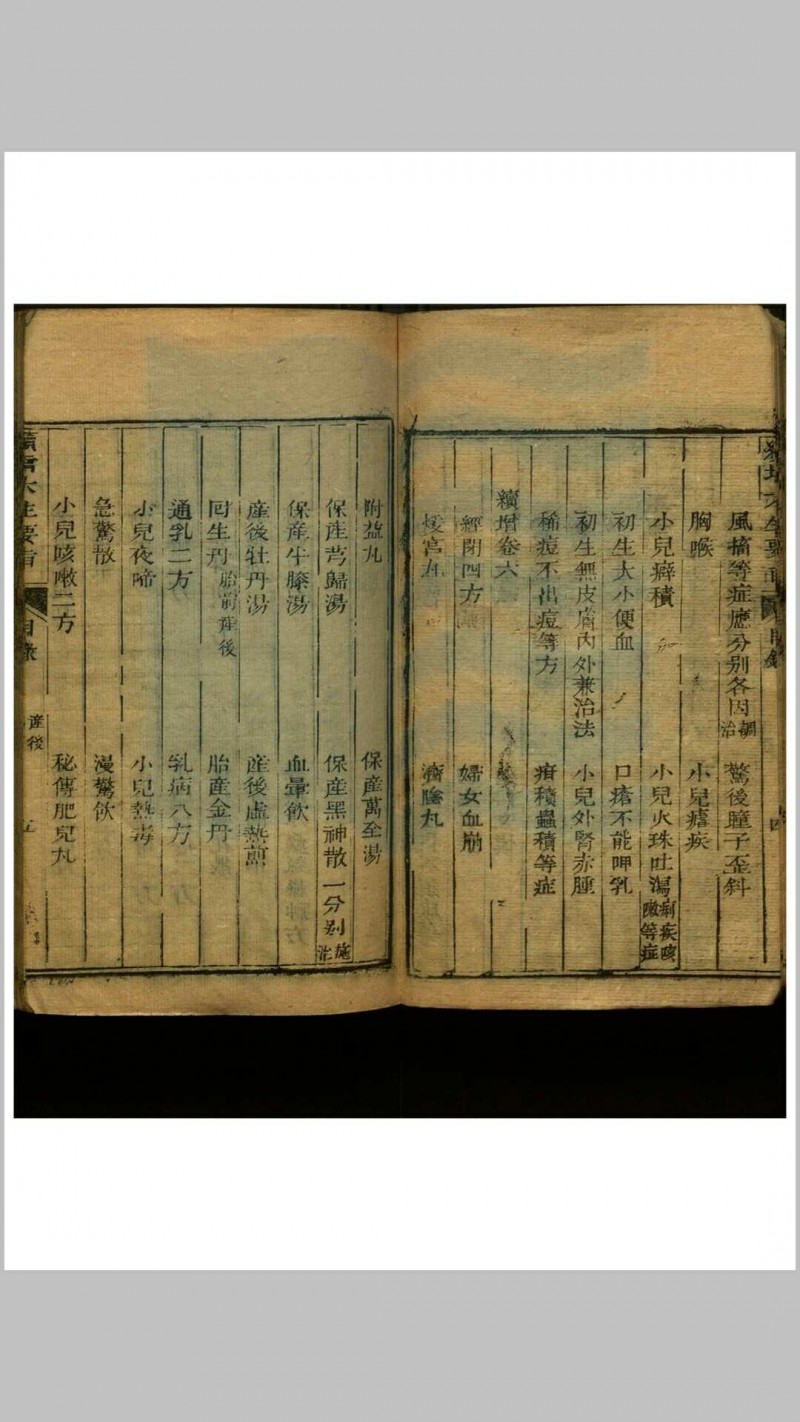 風搐等症應分别各因調治 驚後瞳子歪斜
胸喉 小兒瘧疾
小兒癖積 小兒火珠吐瀉痢疾咳嗽等症
初生大小便血 口瘡不能呷乳
初生無皮膚内外兼治法 小兒外腎赤腫
稀痘不出痘等方 疳積蟲積等症
續增卷六
經閉四方 婦女血崩
煖宮丸 濟陰丸
附益丸 保産萬全湯
保産芎歸湯 保産黑神散一分别施治
保産牛膝湯 血暈飲
産後牡丹湯 産後虛熱煎
回生丹胎前産後 胎産金丹
通乳二方 乳病八方
小兒夜啼 小兒熱毒
急驚散 漫驚飲
小兒咳嗽二方 秘傳肥兒丸
大生要旨 目錄 産後 五